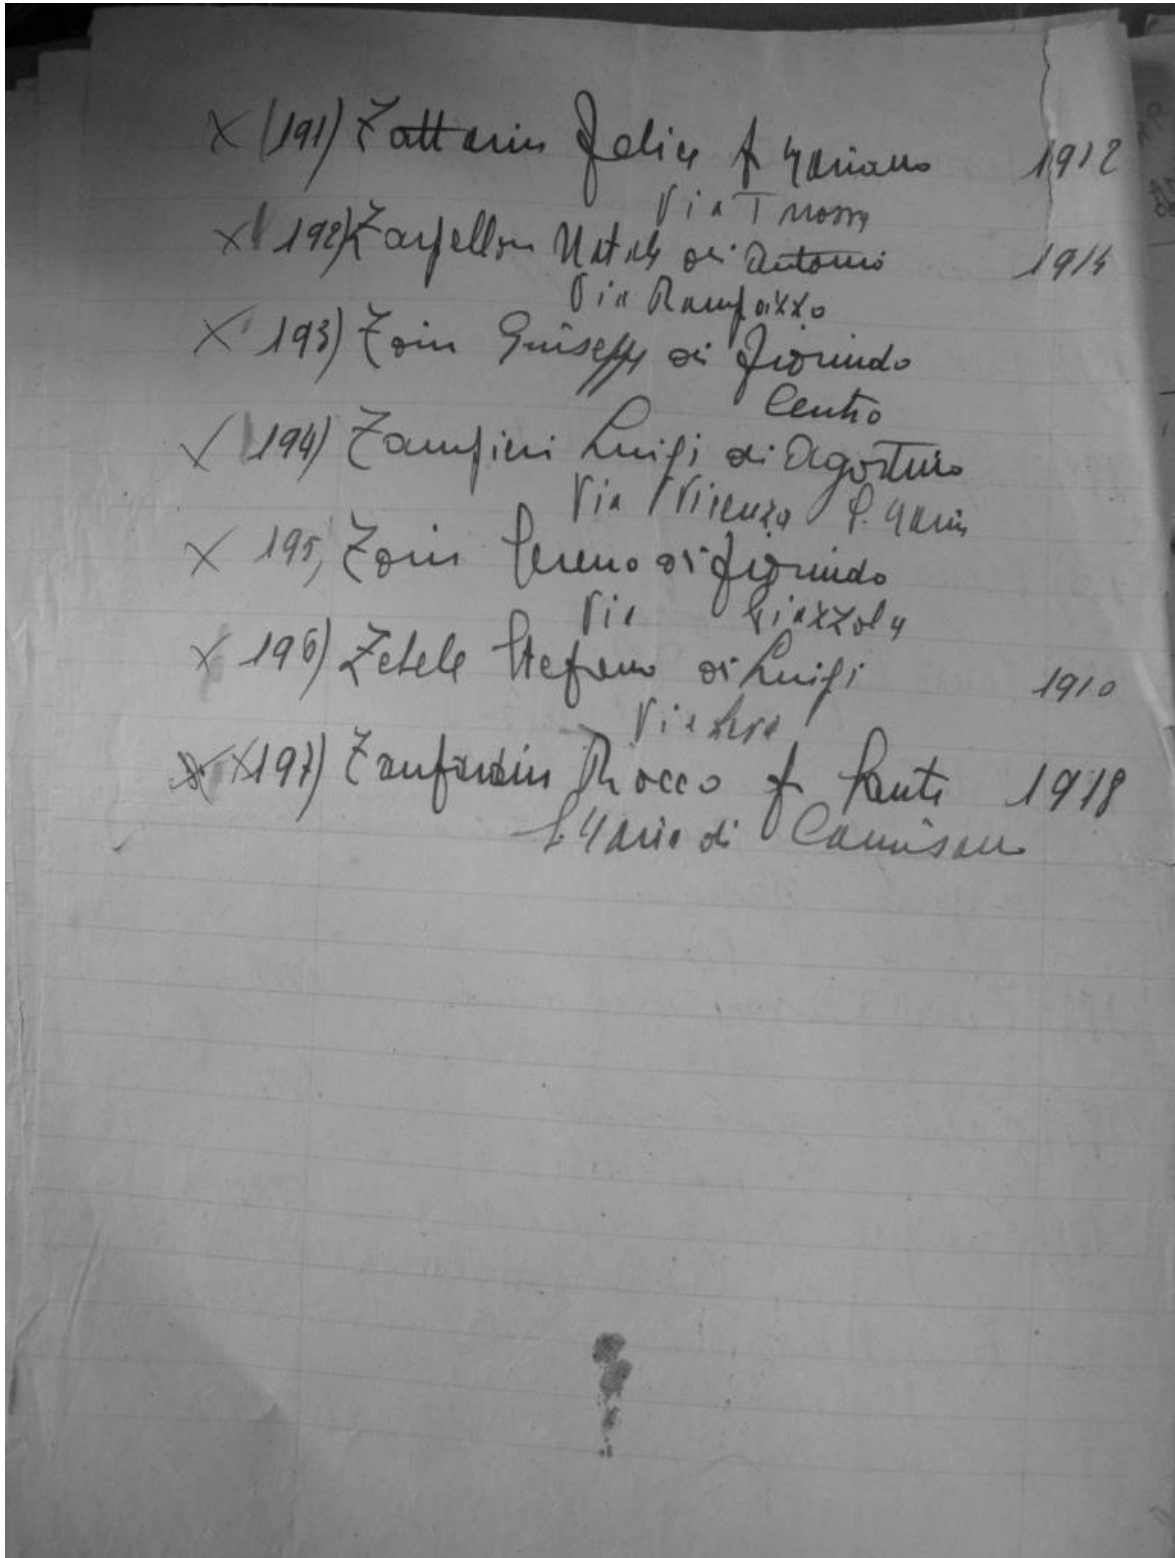 X (191) Zattarin Felice f Mariano 1912
Via
X 192) Zanfellon Natale di Antonio 1914
Via Rampazzo
X 193) Zoin Giuseppe di Fiorindo
Centro
194) Zampieri Luigi di Agostino
Via Vicenza S. Maria
X 195) Zoin Sereno di Fiorindo
Via Piazzola
X 196) Zebele Stefano di Luigi 1910
Via
X 197) Zanfardin Rocco f. Sante 1918
S Maria di Camisano